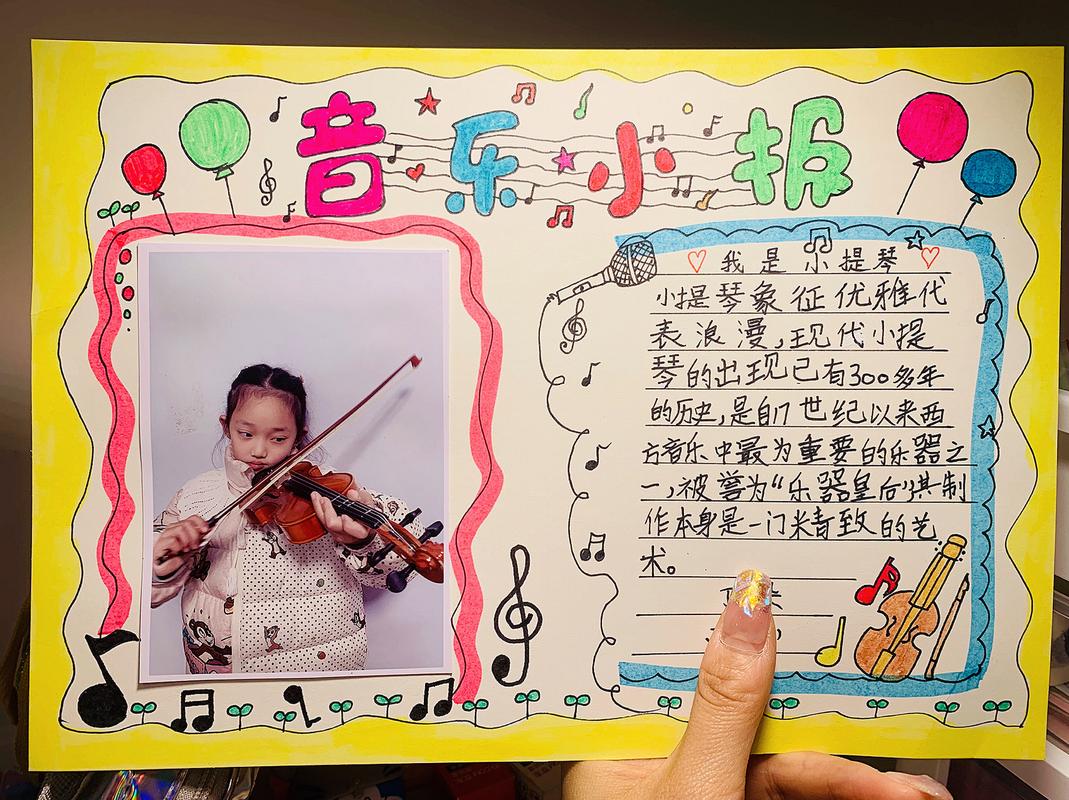 音乐小报
我是小提琴
小提琴象征优雅代
表浪漫,现代小提
琴的出现已有300多年
的历史,是自17世纪以来西
方音乐中最为重要的乐器之
一,被誉为“乐器皇后”,其制
作本身是一门精致的艺
术。